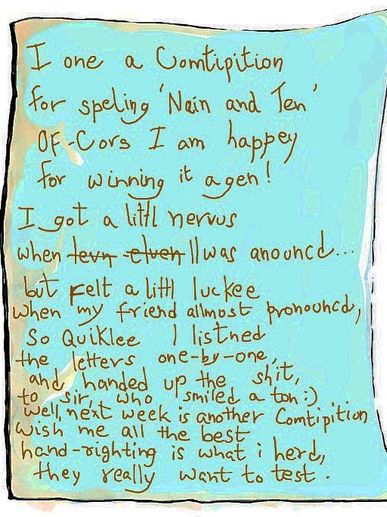 I one a Comtipition
for speling 'Nain and Ten'
OF-Cors I am happey
for winning it agen!
I got a littl nervus
when levn eluen 11 was anouncd...
but Felt a littl luckee
when my friend allmost pronouncd,
So Quiklee I listned
the letters one-by-one,
and handed up the shit,
to sir, who smiled a ton :)
well, next week is another Comtipition
wish me all the best
hand-righting is what i herd,
they really want to test.